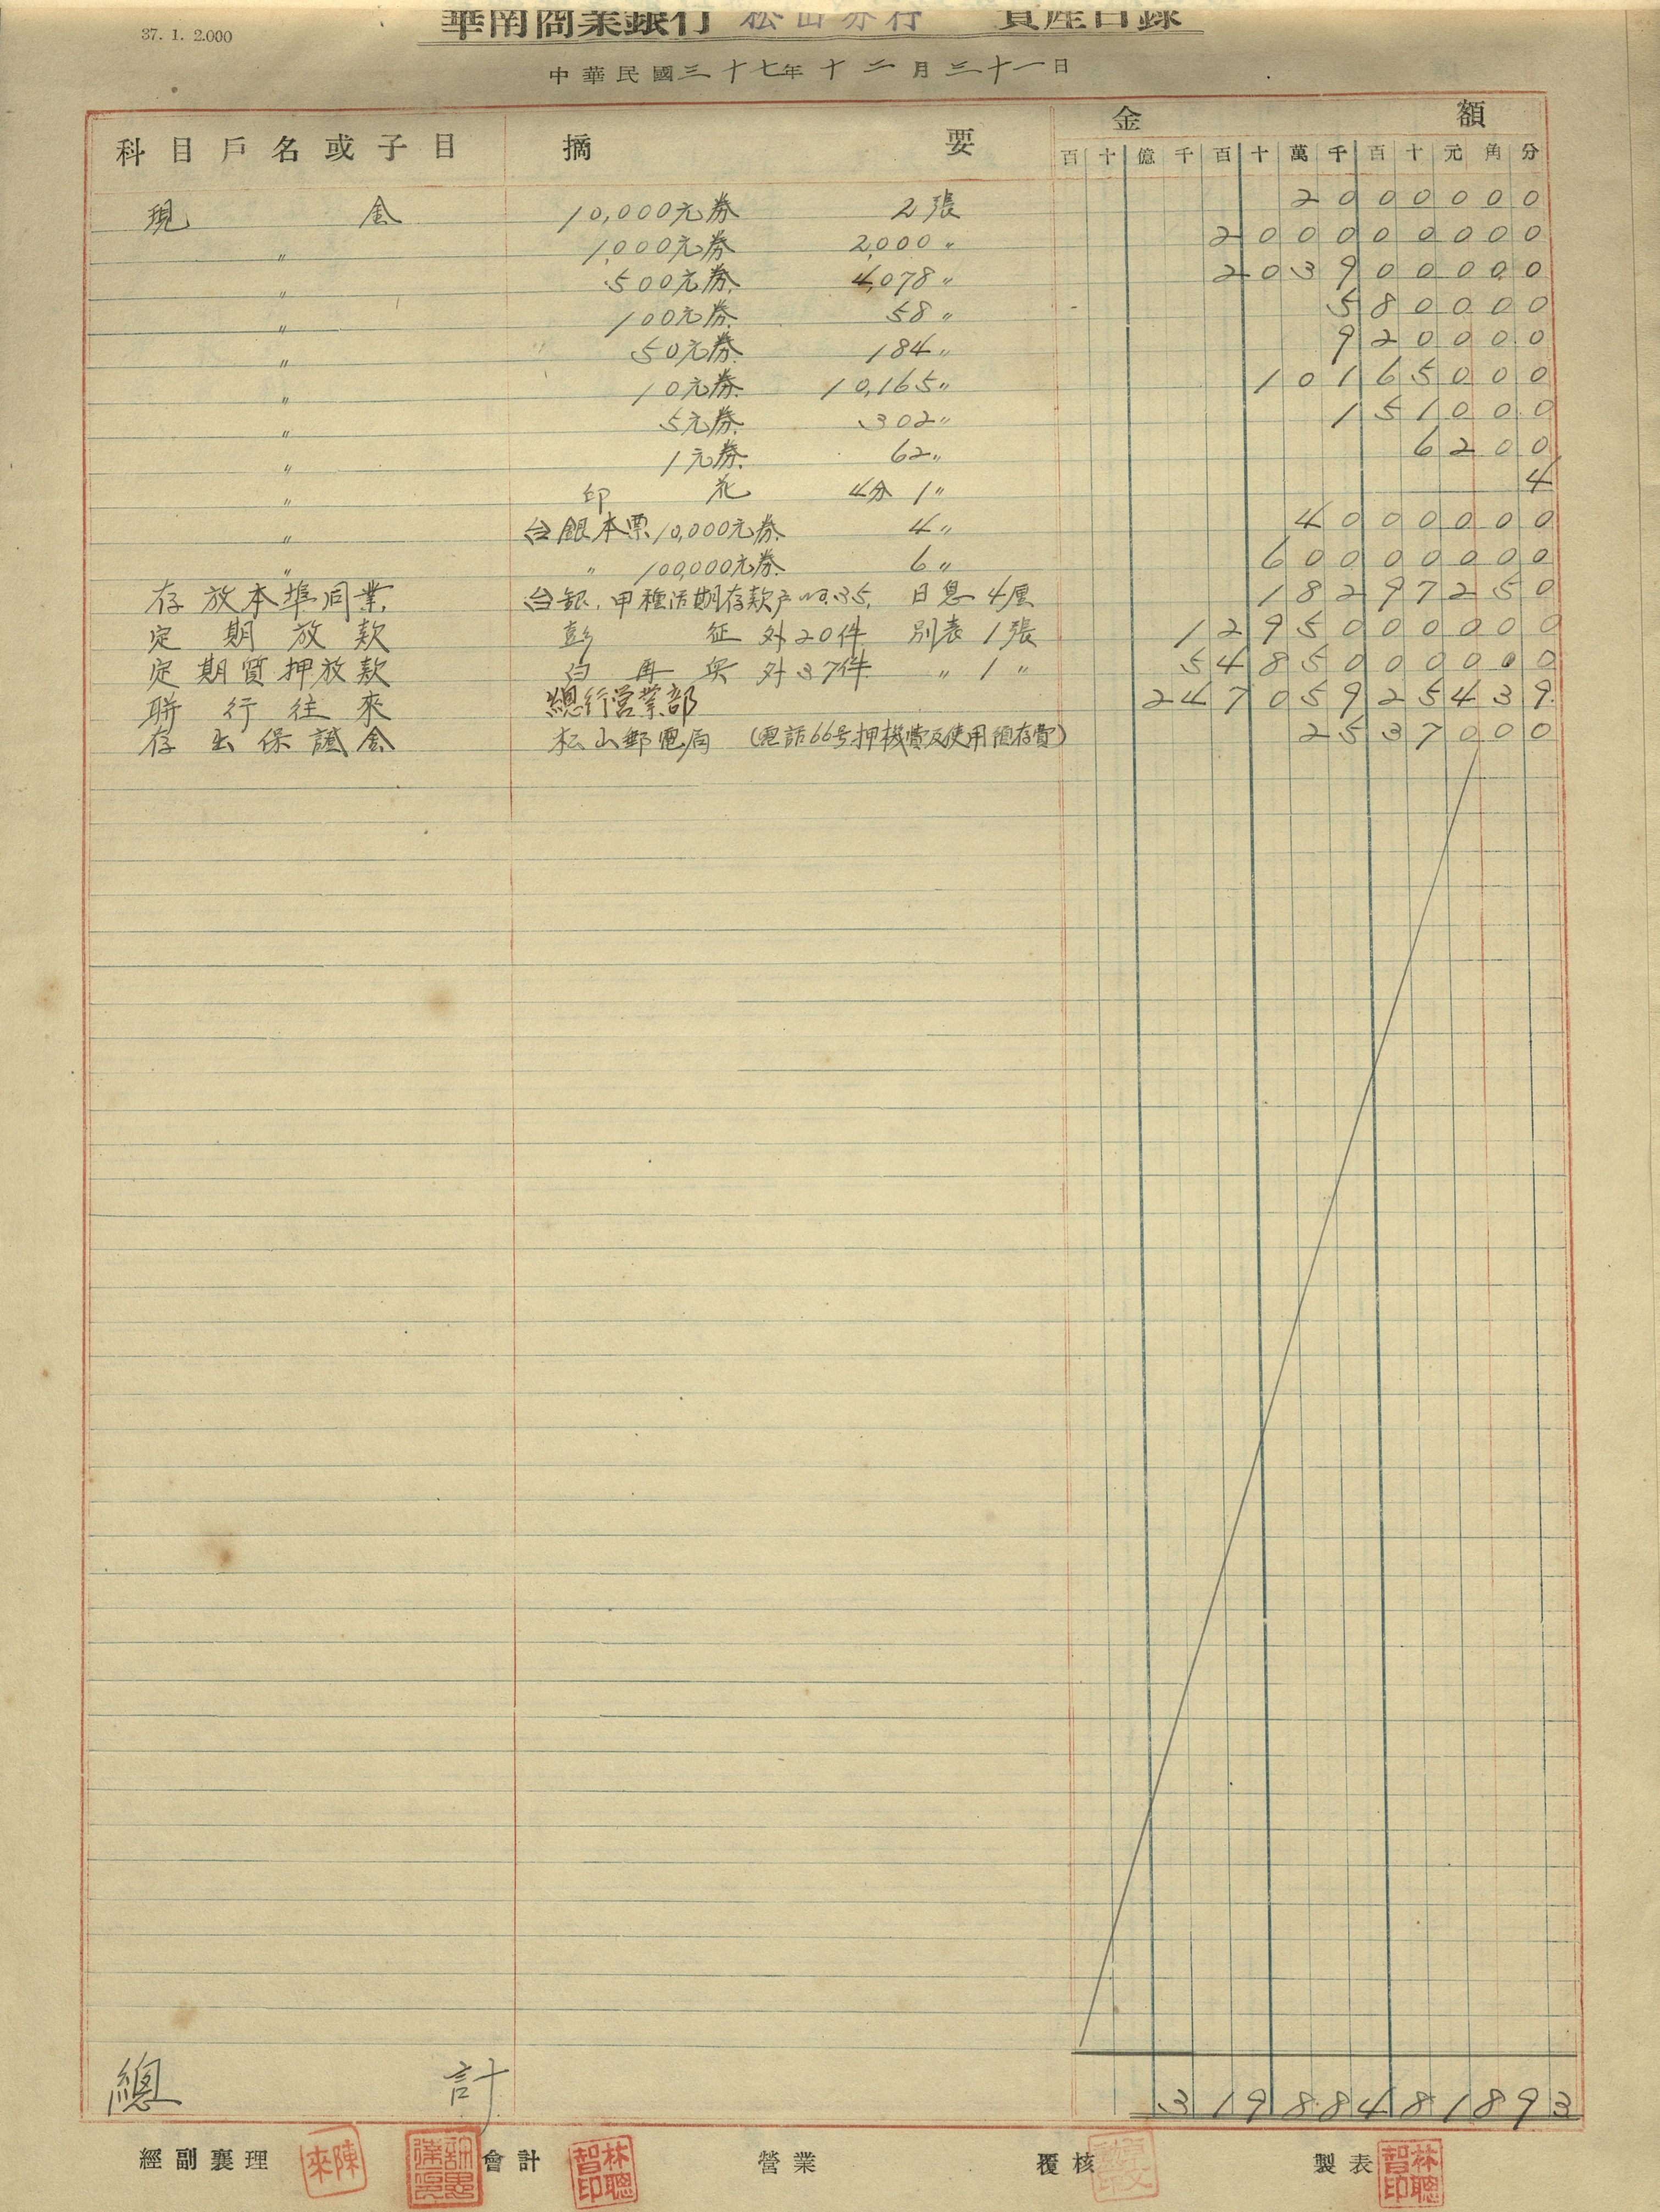 37. 1. 2.000
華南商業銀行 松山分行 資產目錄
中華民國三十七年十二月三十一日
科目戶名或子目 摘要 金額
百十億千百十萬千百十元角分
現金 10,000元券 2張 2000000
〃 1,000元券 2,000〃 200000000
〃 500元券 4,078〃 203900000
〃 100元券 58〃 580000
〃 50元券 184〃 920000
〃 10元券 10,165〃 10165000
〃 5元券 302〃 151000
〃 1元券 62〃 6200
〃 印花 4分 1〃 4
〃 台銀本票10,000元券 4〃 4000000
〃 〃 100,000元券 6〃 60000000
存放本埠同業 台銀.甲種活期存款戶No.35. 日息4厘 18297250
定期放款 彭 征 外20件 別表1張 12950000000
定期質押放款 外37件 〃1〃 5485000000
聯行往來 總行營業部 24705925439
存出保證金 松山郵電局 (電話66号押機費及使用預存費) 2537000
總計 319884 81893
經副襄理 陳來 會計 林聰智印 營業 覆核 製表 林聰智印